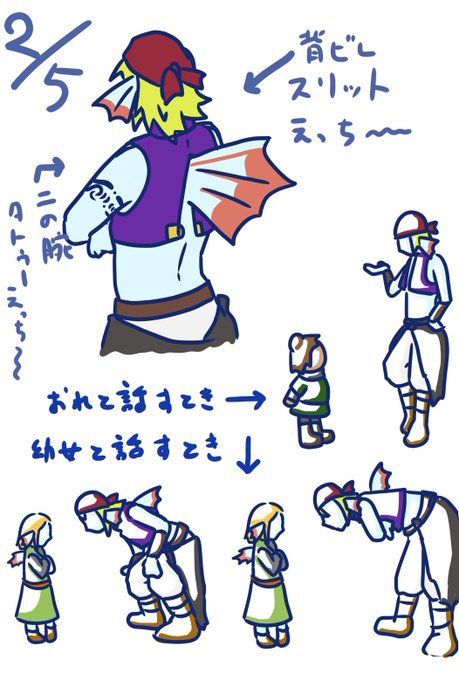 2/5
背ビレ
スリット
えっち〜
二の腕
タトゥーえっち〜
おれと話すとき
幼女と話すとき